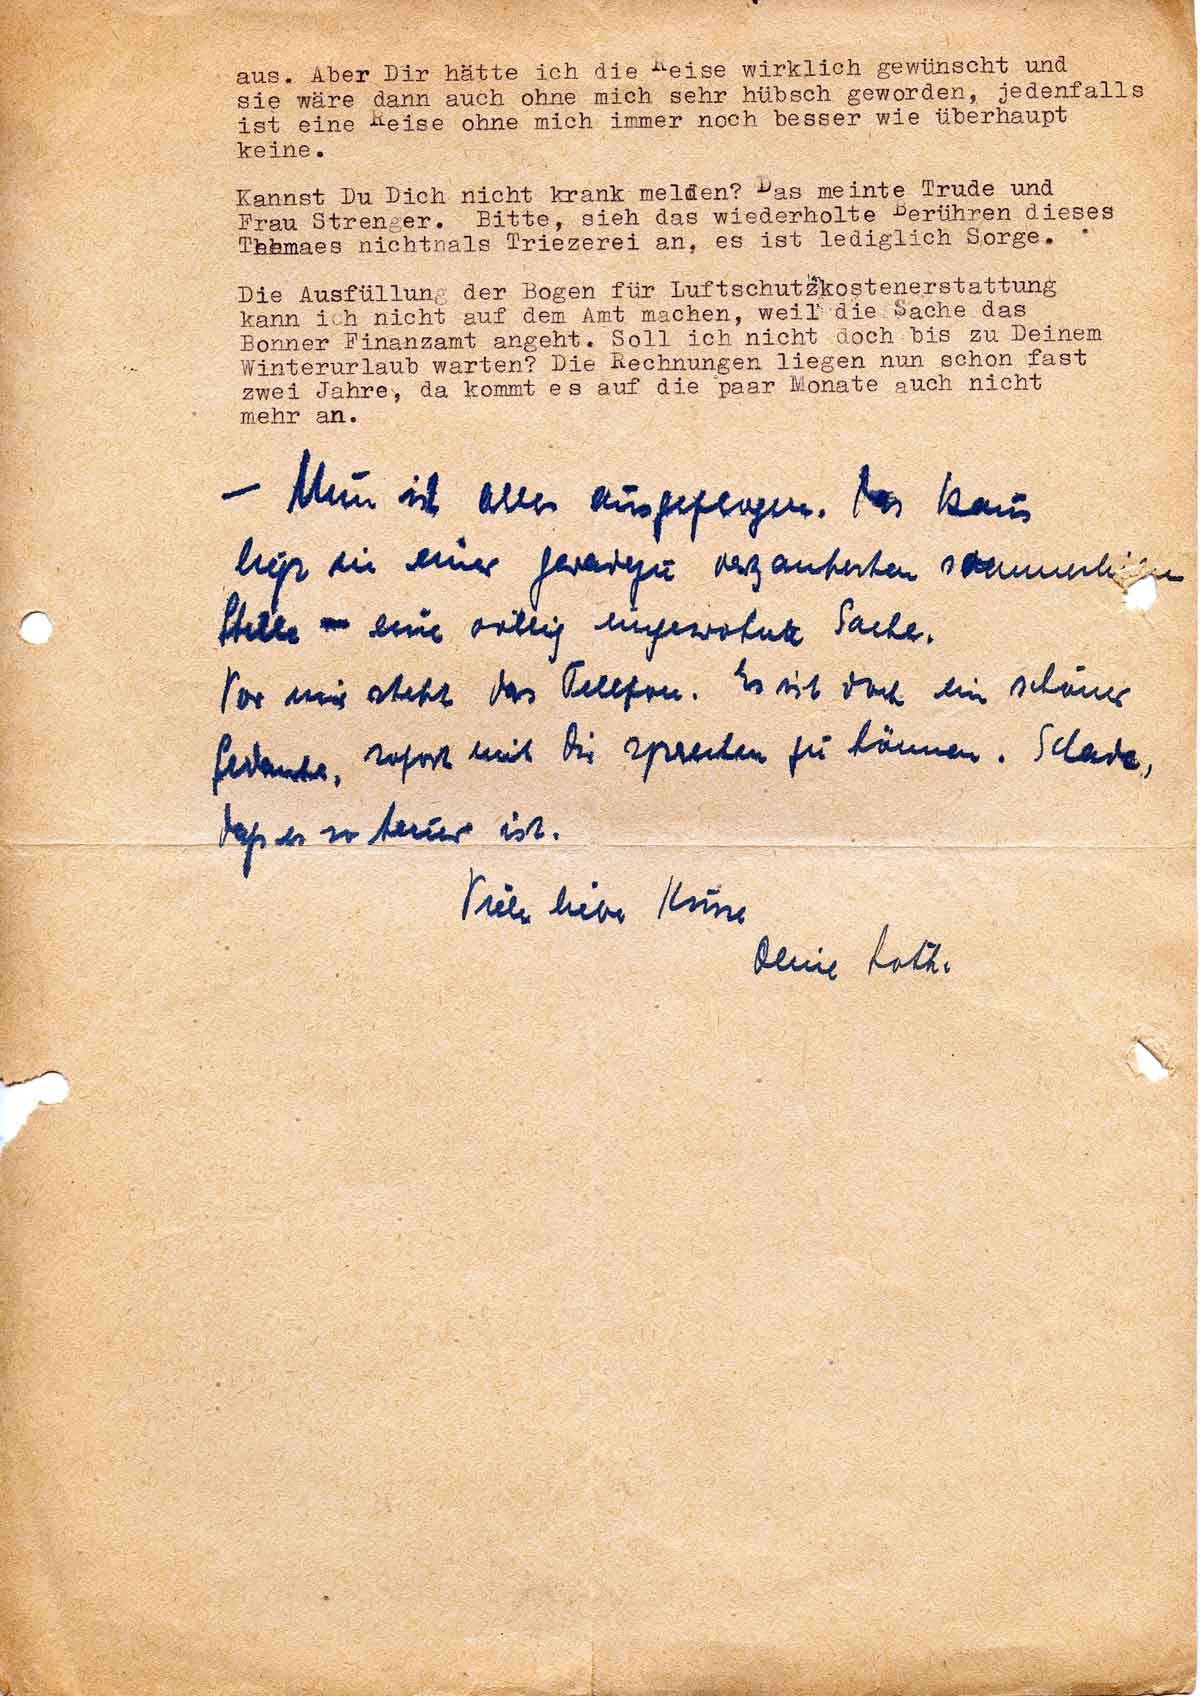 aus. Aber Dir hätte ich die Reise wirklich gewünscht und
sie wäre dann auch ohne mich sehr hübsch geworden, jedenfalls
ist eine Reise ohne mich immer noch besser wie überhaupt
keine.
Kannst Du Dich nicht krank melden? Das meinte Trude und
Frau Strenger. Bitte, sieh das wiederholte Berühren dieses
Themaes nichtnals Triezerei an, es ist lediglich Sorge.
Die Ausfüllung der Bogen für Luftschutzkostenerstattung
kann ich nicht auf dem Amt machen, weil die Sache das
Bonner Finanzamt angeht. Soll ich nicht doch bis zu Deinem
Winterurlaub warten? Die Rechnungen liegen nun schon fast
zwei Jahre, da kommt es auf die paar Monate auch nicht
mehr an.
– Nun ist alles ausgeflogen. Das Haus
liegt in einer geradezu verzauberten sommerlichen
Stille – eine völlig ungewohnte Sache.
Vor mir steht das Telefon. Es ist doch ein schöner
Gedanke, sofort mit Dir sprechen zu können. Schade,
daß es so teuer ist.
Viele liebe Küsse
Deine